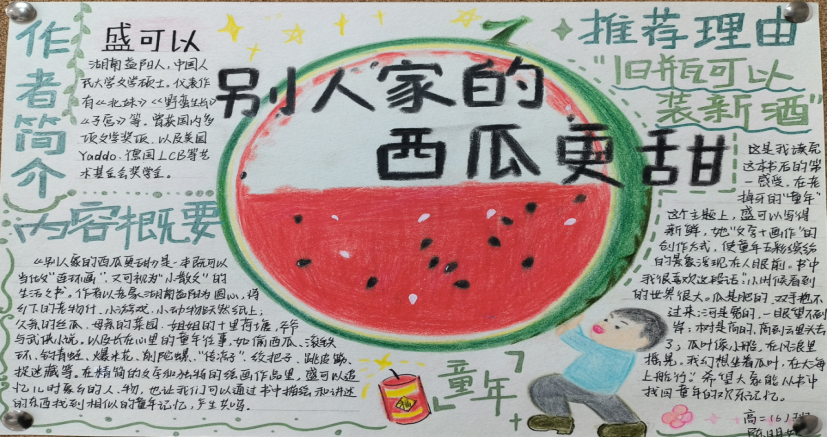 作者简介
盛可以
湖南益阳人，中国人
民大学文学硕士。代表作
有《北妹》《野蛮生长》
《子宫》等，曾获国内多
项文学奖项，以及美国
Yaddo、德国LCB等艺
术基金会奖学金。
别人家的
西瓜更甜
内容概要
《别人家的西瓜更甜》是一本既可以
当做"连环画"，又可视为"小散文"的
生活之书。作者以老家湖南益阳为圆心，将
乡下的老物件、小游戏、小动物跃然纸上；
父亲的丝瓜、母亲的菜园、姐姐的十里荷塘、爷爷
与武侠小说，以及长在心里的童年往事，如偷西瓜、滚铁
环、钓青蛙、爆米花、削陀螺、
捉迷藏等。在精简的文字和独特的绘画作品里，盛可以追
忆儿时家乡的人、物，也让我们可以通过书中描绘和讲述
的东西找到相似的童年记忆，产生共鸣。
童年
推荐理由
"旧瓶可以
装新酒"
这是我读完
这本书后的第
一感受，在老
掉牙的"童年"
这个主题上，盛可以写得
新鲜，她"文字+画作"的
创作方式，使童年五彩缤纷
的景象浮现在人眼前。书中
我很喜欢这段话："小时候看到
的世界很大。瓜是肥的，双手抱不
过来；河是宽的，一眼望不到
岸；树是高的，高到云里头去
了；瓜叶像小船，在风浪里
摇晃。我幻想坐着瓜叶，在大海
上航行。"希望大家能从书中
找回童年的欢乐记忆。
高二（6）班